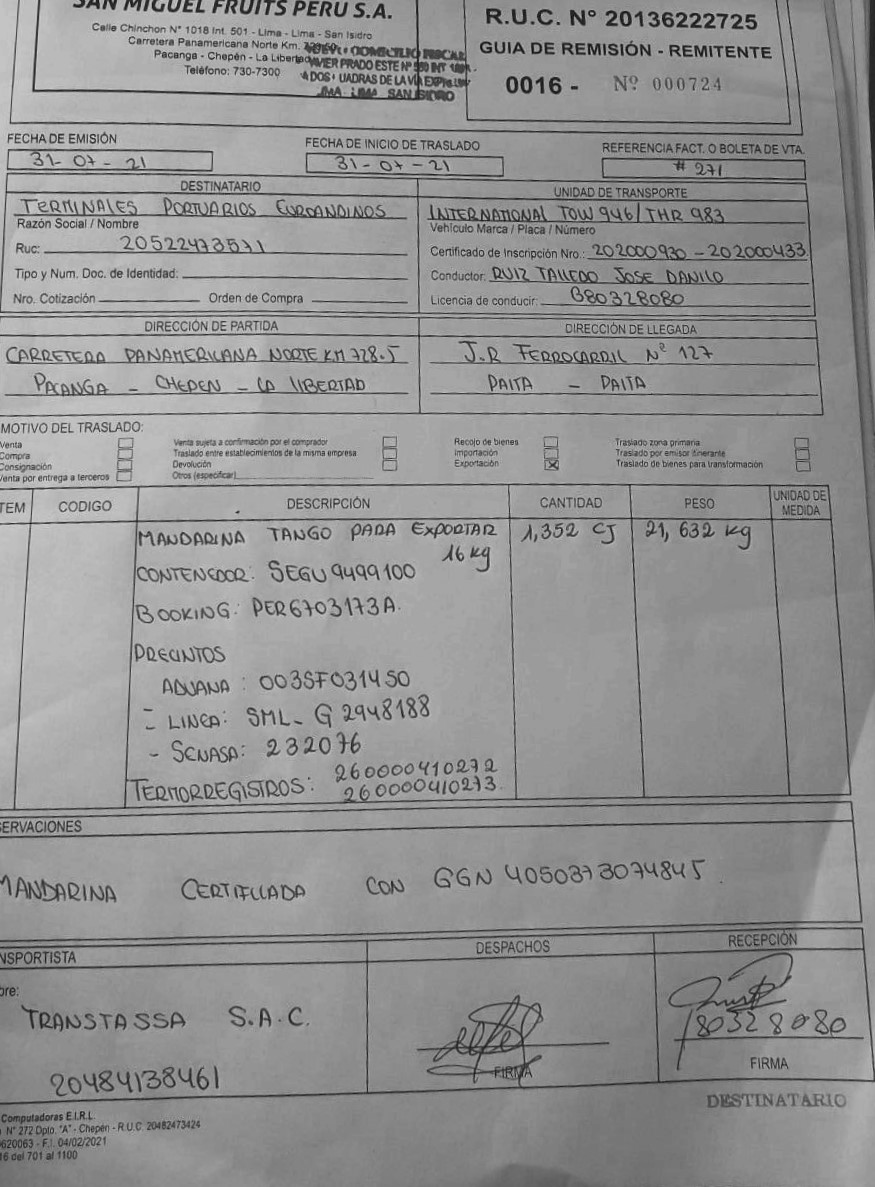 SAN MIGUEL FRUITS PERU S.A.
Calle Chinchon N° 1018 Int. 501 - Lima - Lima - San Isidro
Carretera Panamericana Norte Km.
Pacanga - Chepén - La Libertad
Teléfono: 730-7300
NUEVO DOMICILIO FISCAL
JAVIER PRADO ESTE Nº
CUADRAS DE LA VIA
LIMA - LIMA SAN ISIDRO
R.U.C. N° 20136222725
GUIA DE REMISIÓN - REMITENTE
0016 - Nº 000724
FECHA DE EMISIÓN
31-07-21
FECHA DE INICIO DE TRASLADO
31-07-21
REFERENCIA FACT. O BOLETA DE VTA.
# 271
DESTINATARIO
TERMINALES PORTUARIOS EUROANDINOS
Razón Social / Nombre
Ruc: 20522473571
Tipo y Num. Doc. de Identidad:
Nro. Cotización Orden de Compra
UNIDAD DE TRANSPORTE
INTERNATIONAL TOW 946/THR 983
Vehículo Marca / Placa / Número
Certificado de Inscripción Nro.: 202000930-202000433
Conductor: RUIZ TALLEDO JOSE DANILO
Licencia de conducir: B80328080
DIRECCIÓN DE PARTIDA
CARRETERA PANAMERICANA NORTE KM 728.5
PACANGA - CHEPEN - LA LIBERTAD
DIRECCIÓN DE LLEGADA
J.R FERROCARRIL Nº 127
PAITA - PAITA
MOTIVO DEL TRASLADO:
Venta
Compra
Consignación
Venta por entrega a terceros
Venta sujeta a confirmación por el comprador
Traslado entre establecimientos de la misma empresa
Devolución
Otros (especificar)
Recojo de bienes
Importación
Exportación X
Traslado zona primaria
Traslado por emisor itinerante
Traslado de bienes para transformación
TEM CODIGO DESCRIPCIÓN CANTIDAD PESO UNIDAD DE MEDIDA
MANDARINA TANGO PARA EXPORTAR 1,352 CJ 21,632 kg
16 kg
CONTENEDOR: SEGU 9499100
BOOKING: PER6703173A.
PRECINTOS
ADUANA: 003SF031450
- LINEA: SML-G 2948188
- SENASA: 232076
TERMORREGISTROS: 260000410272
260000410273.
SERVACIONES
MANDARINA CERTIFICADA CON GGN 4050373074845.
NSPORTISTA
bre:
TRANSTASSA S.A.C.
20484138461
DESPACHOS
FIRMA
RECEPCIÓN
80328080
FIRMA
DESTINATARIO
Computadoras E.I.R.L.
N° 272 Dpto. "A" - Chepén - R.U.C. 20482473424
620063 - F.I. 04/02/2021
16 del 701 al 1100